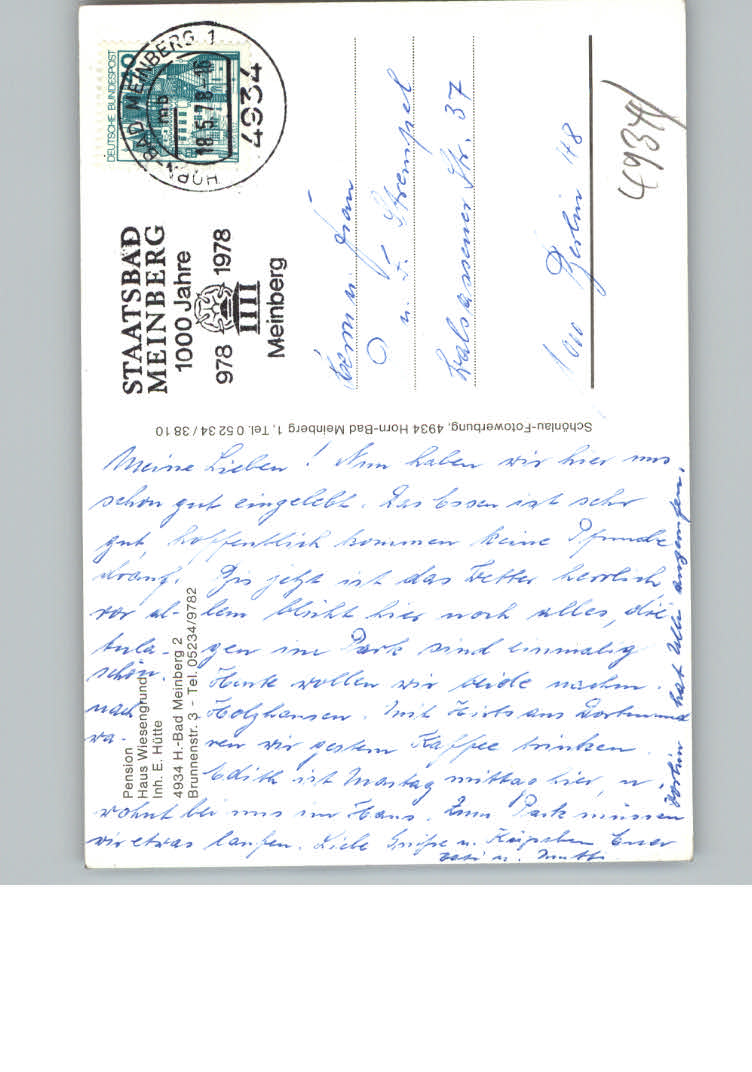 DEUTSCHE BUNDESPOST
HORN-BAD MEINBERG 1
mb
18.5.78-16
4934
STAATSBAD
MEINBERG
1000 Jahre
978 1978
Meinberg
Herrn u. Frau
u. Strempel
Str. 37
1000 Berlin 48
4934
Schönlau-Fotowerbung, 4934 Horn-Bad Meinberg 1, Tel. 0 52 34 / 38 10
Pension
Haus Wiesengrund
Inh. E. Hütte
4934 H.-Bad Meinberg 2
Brunnenstr. 3 - Tel. 05234/9782
Meine Lieben! Nun haben wir hier uns
schon gut eingelebt. Das Essen ist sehr
gut, hoffentlich kommen keine Pfunde
drauf. Bis jetzt ist das Wetter herrlich,
vor allem blüht hier noch alles, die
gen im Park sind einmalig
schön. Heute wollen wir beide nachm.
nach Holzhausen. Mit aus Dortmund
wa-ren wir gestern Kaffee trinken.
Edith ist Montag mittag hier, u.
wohnt bei uns im Haus. Zum Park müssen
wir etwas laufen. Liebe Grüße u. Küßchen Euer
Vati u. Mutti.
hat Ulli angerufen.